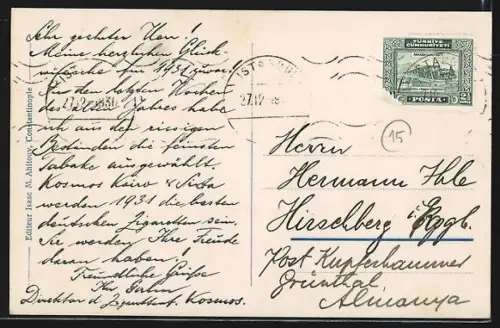 Sehr geehrter Herr!
Meine herzlichen Glück-
wünsche für 1931 zuvor!
In den letzten Wochen
des alten Jahres habe
ich aus den riesigen
Beständen die feinsten
Tabake ausgewählt.
Kosmos Kairo &
werden 1931 die besten
deutschen Zigaretten sein.
Sie werden Ihre Freude
daran haben!
Freundliche Grüße
Ihr
Direktor d. Zigarettenf. Kosmos.
Editeur Isaac M. Ahitouv, Constantinople
ISTANBUL
27.12
27.12.1930
TÜRKİYE
CUMHURİYETİ
POSTA
2
15
Herrn
Hermann Ihle
Hirschberg
Post Kupferhammer
Grünthal
Almanya